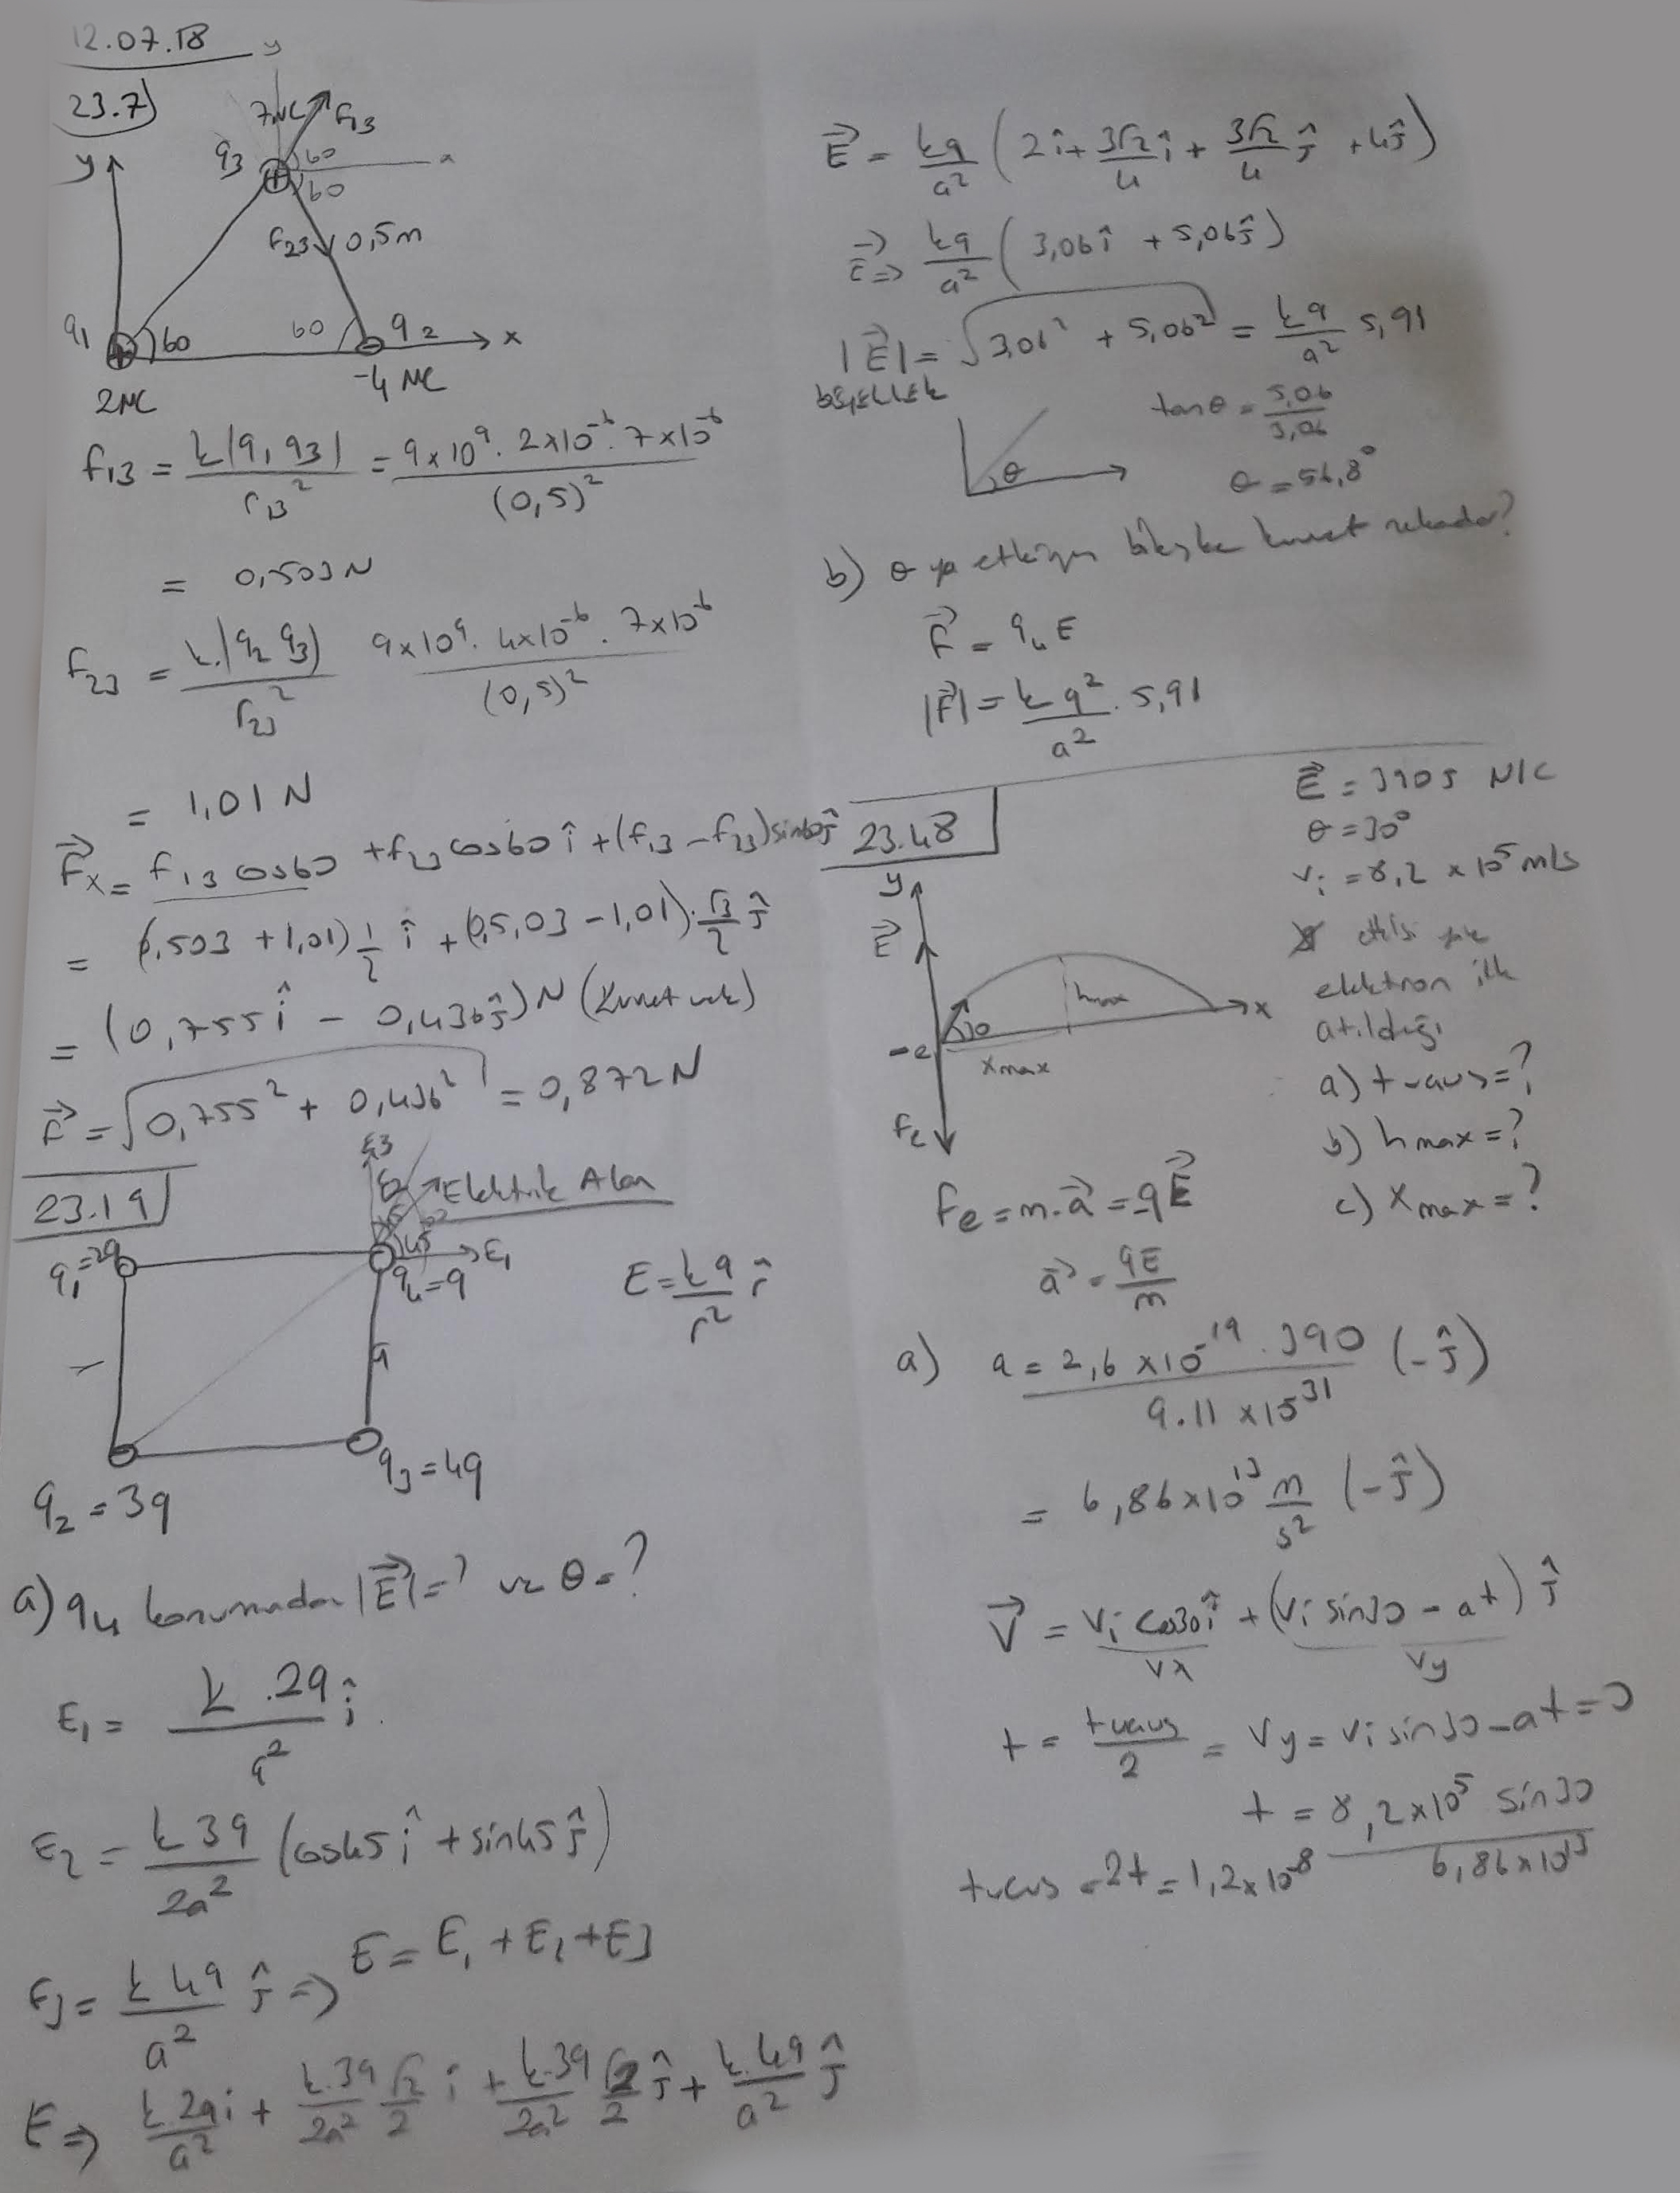 12.07.18
y
23.7)
7μC F13
q3 60 x
60
y
F23 0,5m
q1 60 60 q2 x
2μC -4 μC
F13 = k|q1 q3| / r13² = 9x10⁹. 2x10⁻⁶. 7x10⁻⁶ / (0,5)²
= 0,503N
F23 = k.|q2 q3| / r23² 9x10⁹. 4x10⁻⁶. 7x10⁻⁶ / (0,5)²
= 1,01N
F⃗x = F13 cos60 + F23 cos60 î + (F13 - F23) sin60 ĵ
= (0,503 + 1,01) 1/2 î + (0,5,03 - 1,01). √3/2 ĵ
= (0,755 î - 0,436 ĵ) N (kuvvet vek)
F⃗ = √0,755² + 0,436² = 0,872N
23.19
E3
E2 Elektrik Alan
q1=2q 45 E1
q4=q E = kq/r² r̂
a
q2 = 3q q3 = 4q
a) q4 konumundan |E⃗| = ? ve θ = ?
E1 = k.2q/a² î
E2 = k3q/2a² (cos45 î + sin45 ĵ)
E3 = k4q/a² ĵ => E = E1 + E2 + E3
E => k.2q/a² i + k.3q/2a² √2/2 i + k.3q/2a² √2/2 ĵ + k.4q/a² ĵ
E⃗ = kq/a² (2î + 3√2/4 î + 3√2/4 ĵ + 4ĵ)
E⃗ => kq/a² (3,06î + 5,06ĵ)
|E⃗| = √3,06² + 5,06² = kq/a² 5,91
tanθ = 5,06/3,06
θ
θ = 56,8°
b) q ya etkiyen bileşke kuvvet nekadar?
F⃗ = q4 E
|F⃗| = kq²/a². 5,91
23.48
E⃗ = 390 j N/C
θ = 30°
vi = 8,2 x 10⁵ m/s
y
E⃗
hmax
30 x
-e xmax
Fe
elektron ilk
atıldığı
a) tuçuş = ?
b) hmax = ?
c) xmax = ?
Fe = m.a⃗ = -qE⃗
a⃗ = qE/m
a) a = 2,6 x10⁻¹⁹. 390 / 9.11 x10⁻³¹ (-ĵ)
= 6,86x10¹³ m/s² (-ĵ)
V⃗ = vi cos30 î + (vi sin30 - at) ĵ
vx vy
t = tuçuş/2 = Vy = vi sin30 - at = 0
t = 8,2x10⁵ sin30 / 6,86x10¹³
tuçuş = 2t = 1,2x10⁻⁸